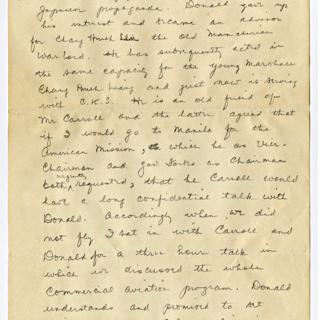 Japanese propaganda. Donald gave up
his interest and became an advisor
for Chang Hsueh the old Manchurian
War lord. He has subsequently acted in
the same capacity for the young Marshall
Chang Hsueh Liang and just now is serving
with C.K.S. He is an old friend of
Mr Carroll and the latter agreed that
if I would go to Manila for the
American Mission, which he as Vice-
Chairman and Gov Forbes as Chairman
both urgently requested, that he Carroll would
have a long confidential talk with
Donald. Accordingly when we did
not fly I sat in with Carroll and
Donald for a three hour talk in
which we discussed the whole
commercial aviation program. Donald
understands and promised to act